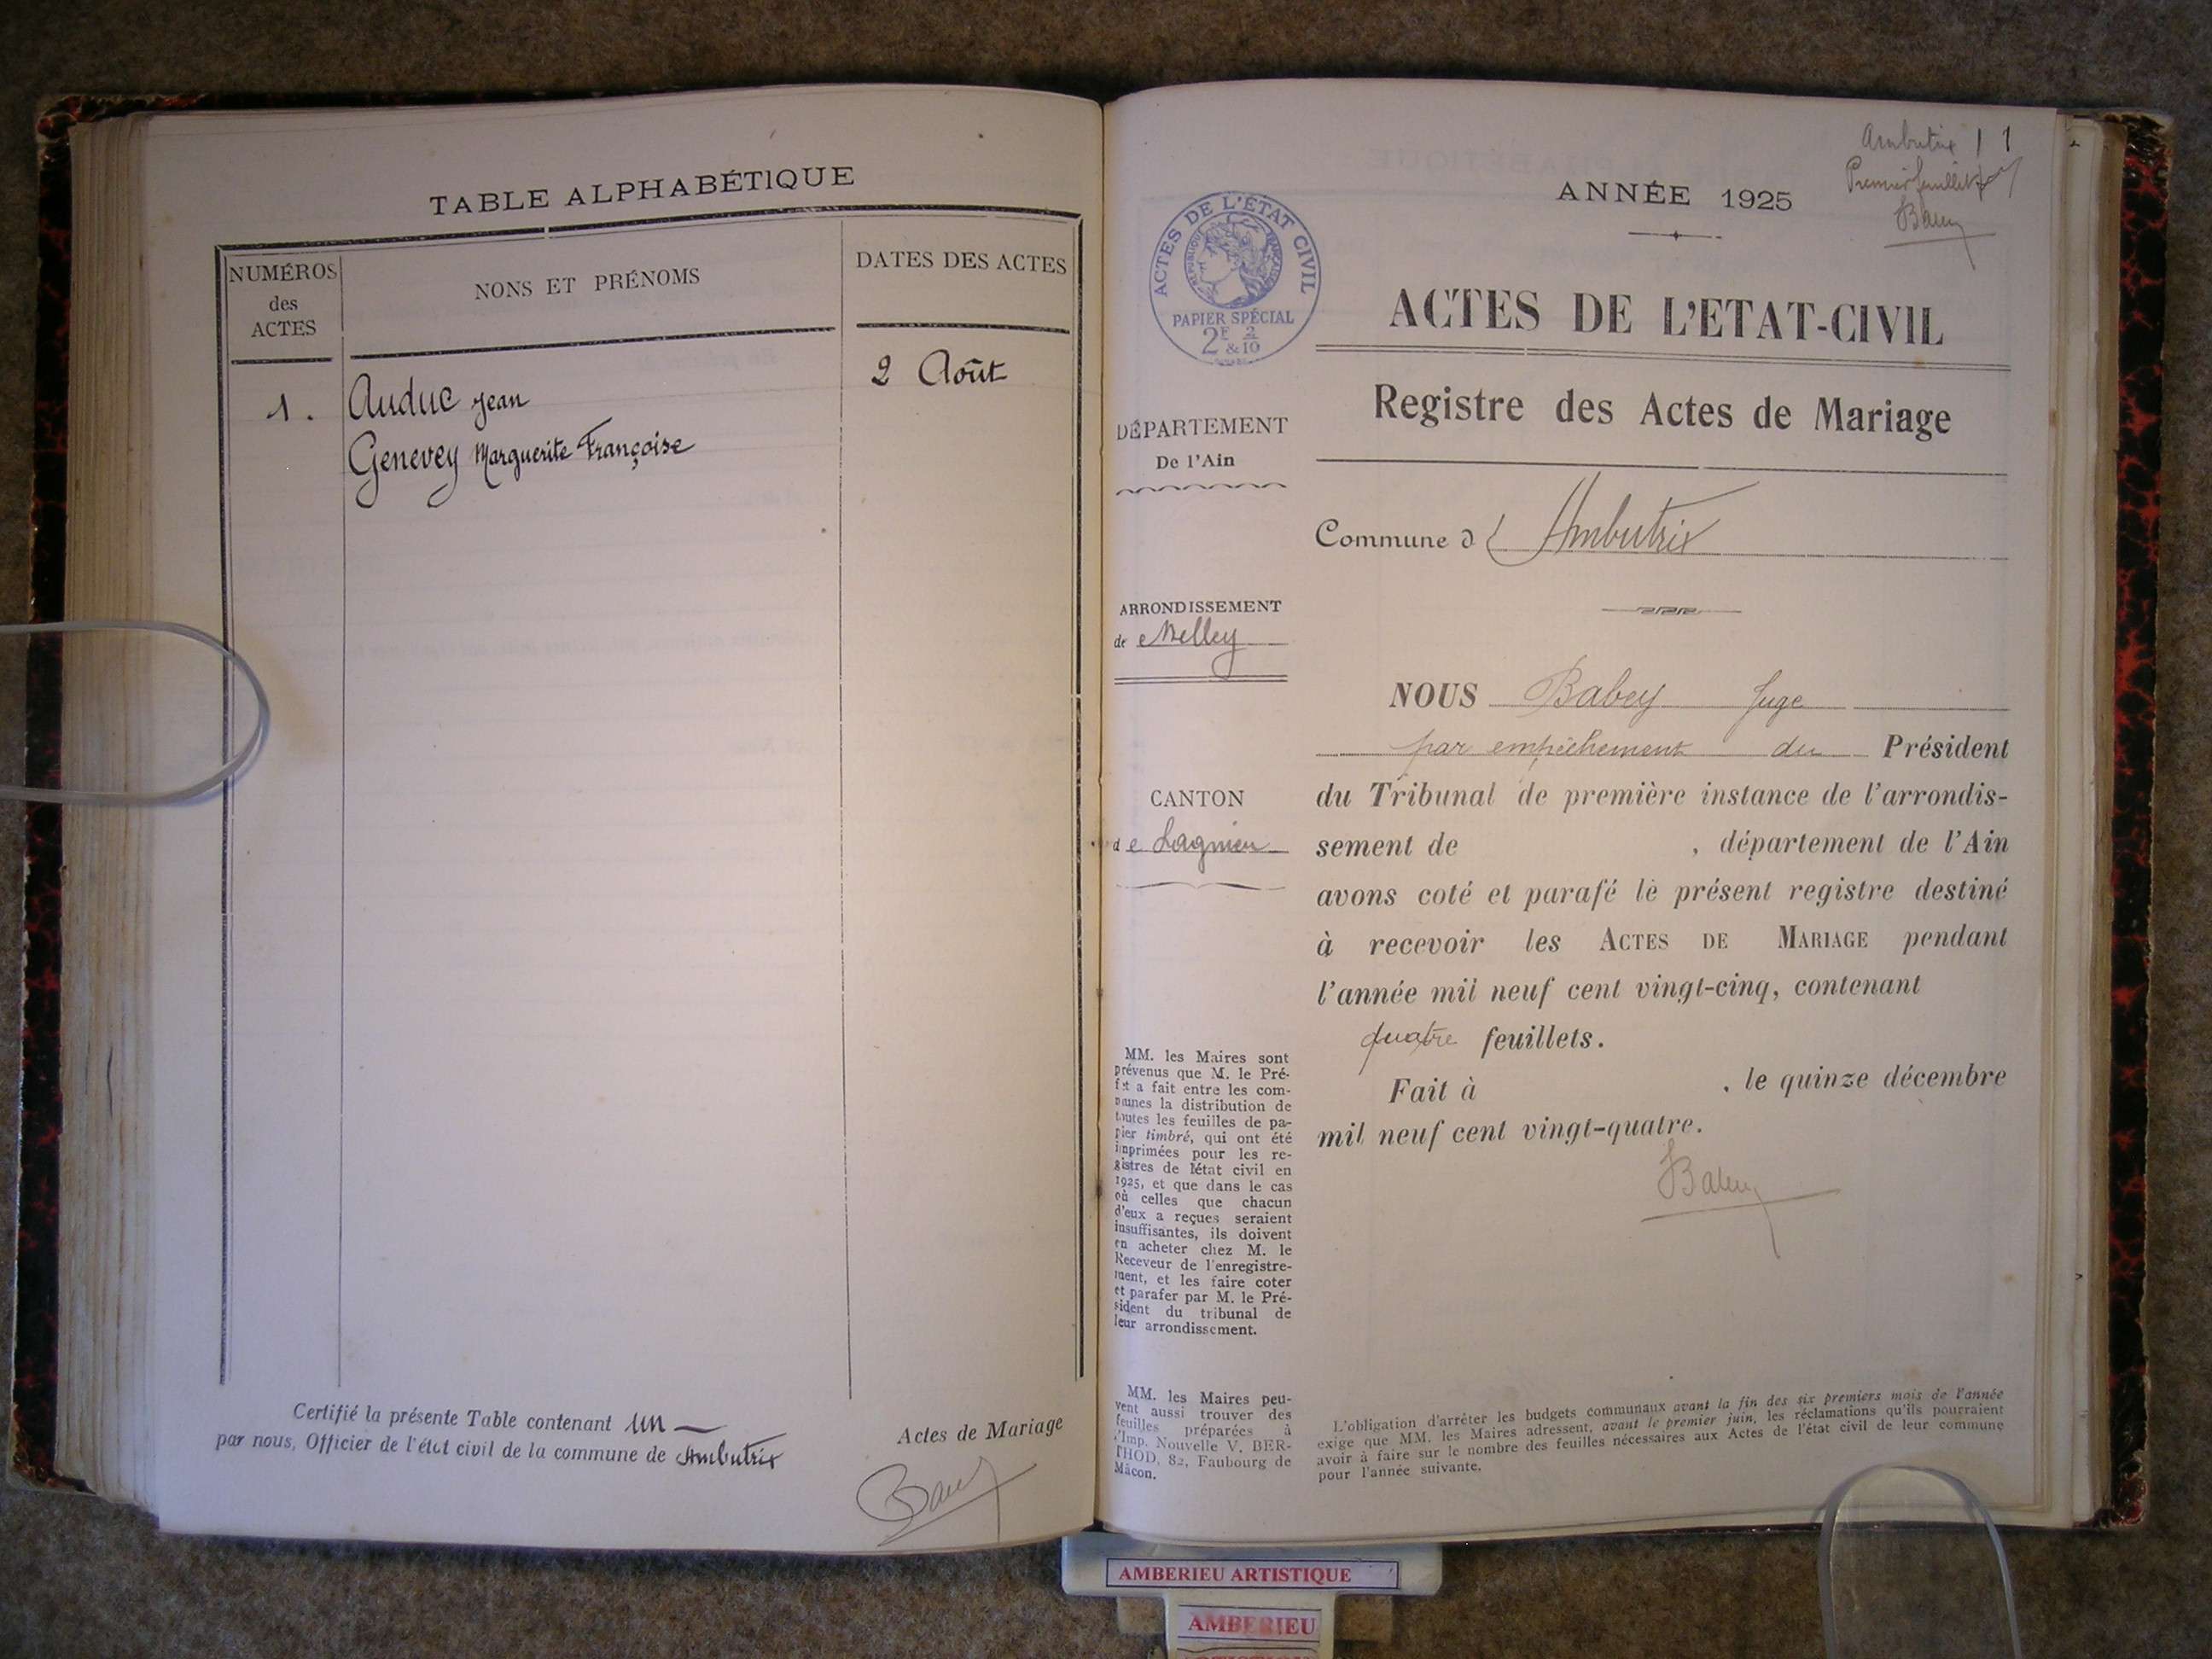 TABLE ALPHABÉTIQUE
NUMÉROS
des
ACTES
NONS ET PRÉNOMS
DATES DES ACTES
1. Auduc Jean
2 Août
Genevey Marguerite Françoise
Certifié la présente Table contenant un
Actes de Mariage
par nous, Officier de l'état civil de la commune de Ambutrix
Ambutrix 1 1
Premier feuillet
Babey
ANNÉE 1925
ACTES DE L'ÉTAT CIVIL
RÉPUBLIQUE FRANÇAISE
PAPIER SPÉCIAL
2F 2
& 10
ACTES DE L'ETAT-CIVIL
Registre des Actes de Mariage
DÉPARTEMENT
De l'Ain
Commune d'Ambutrix
ARRONDISSEMENT
de Belley
CANTON
de Lagnieu
NOUS Babey Juge
par empêchement du Président
du Tribunal de première instance de l'arrondis-
sement de , département de l'Ain
avons coté et parafé le présent registre destiné
à recevoir les ACTES DE MARIAGE pendant
l'année mil neuf cent vingt-cinq, contenant
quatre feuillets.
Fait à , le quinze décembre
mil neuf cent vingt-quatre.
Babey
MM. les Maires sont
prévenus que M. le Pré-
fet a fait entre les com-
munes la distribution de
toutes les feuilles de pa-
pier timbré, qui ont été
imprimées pour les re-
gistres de létat civil en
1925, et que dans le cas
où celles que chacun
d'eux a reçues seraient
insuffisantes, ils doivent
en acheter chez M. le
Receveur de l'enregistre-
ment, et les faire coter
et parafer par M. le Pré-
sident du tribunal de
leur arrondissement.
MM. les Maires peu-
vent aussi trouver des
feuilles préparées à
l'Imp. Nouvelle V. BER-
THOD, 82, Faubourg de
Mâcon.
L'obligation d'arrêter les budgets communaux avant la fin des six premiers mois de l'année
exige que MM. les Maires adressent, avant le premier juin, les réclamations qu'ils pourraient
avoir à faire sur le nombre des feuilles nécessaires aux Actes de l'état civil de leur commune
pour l'année suivante.
AMBERIEU ARTISTIQUE
AMBERIEU